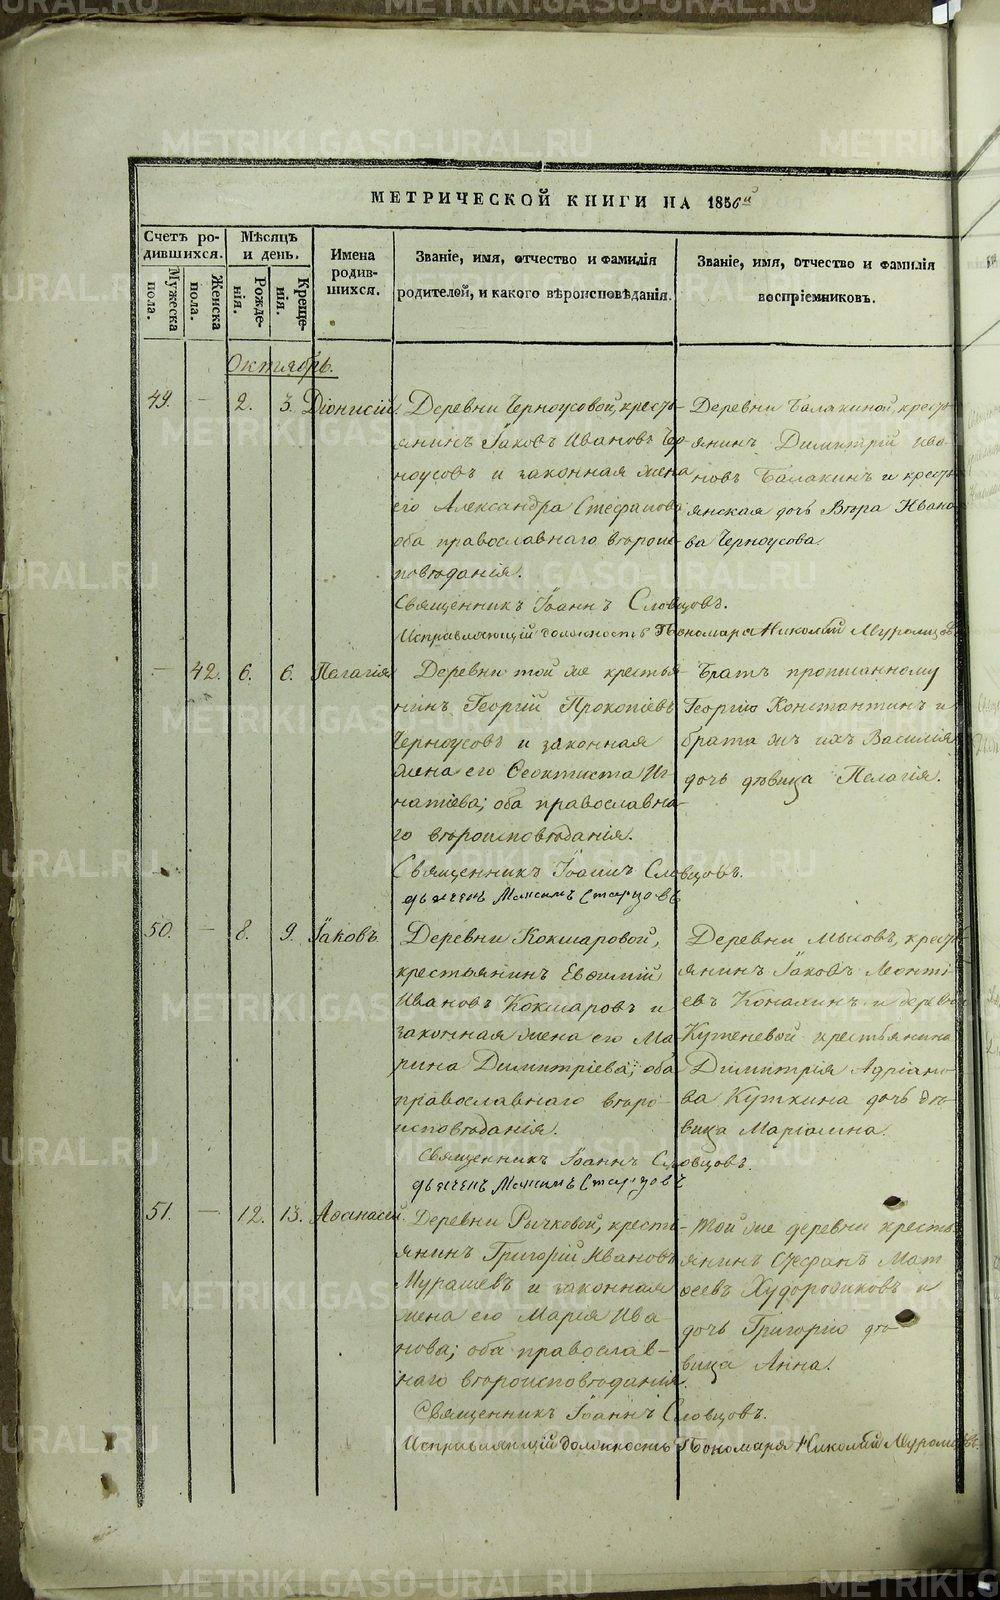 МЕТРИЧЕСКОЙ КНИГИ НА 1856й
Счетъ родившихся.
Мужеска пола.
Женска пола.
Мѣсяцъ и день.
Рожденія.
Крещенія.
Имена родившихся.
Званіе, имя, отчество и фамилія родителей, и какого вѣроисповѣданія.
Званіе, имя, отчество и фамилія воспріемниковъ.
Октябрь.
49. — 2. 3. Діонисій
Деревни Черноусовой, кресть-
янинъ Іаковъ Ивановъ Чер
ноусовъ и законная жена
его Александра Стефанова
оба православнаго вѣроис-
повѣданія.
Священникъ Іоаннъ Словцовъ.
Исправляющій должность Пономаря Николай Муромцовъ
Деревни Балакиной, кресть-
янинъ Димитрій Ива-
новъ Балакинъ и кресть
янская дочь Вѣра Ивано
ва Черноусова.
— 42. 6. 6. Пелагія
Деревни той же крестья
нинъ Георгій Прокопіевъ
Черноусовъ и законная
жена его Ѳеоктиста Иг
натіева; оба православна-
го вѣроисповѣданія.
Священникъ Іоаннъ Словцовъ.
дьячекъ Максимъ Старцовъ
Братъ прописанному
Георгію Константинъ и
брата жъ ихъ Василія
дочь дѣвица Пелагія.
50. — 8. 9. Іаковъ
Деревни Кокшаровой,
крестьянинъ Евѳимій
Ивановъ Кокшаровъ и
законная жена его Ма
рина Димитріева; оба
православнаго вѣро-
исповѣданія.
Священникъ Іоаннъ Словцовъ.
дьячекъ Максимъ Старцовъ
Деревни Мысовъ, кресть-
янинъ Іаковъ Леонті
евъ Коналинъ и деревни
Кутеневой крестьянина
Димитрія Адріано-
ва Куткина дочь дѣ-
вица Маріамна.
51. — 12. 13. Аѳанасій.
Деревни Рычковой, кресть-
янинъ Григорій Ивановъ
Мурашевъ и законная
жена его Марія Ива
нова; оба православ-
наго вѣроисповѣданія.
Священникъ Іоаннъ Словцовъ.
Исправляющій должность Пономаря Николай Муромцовъ.
Той же деревни кресть
янинъ Стефанъ Мат
ѳеевъ Худорожковъ и
дочь Григорію дѣ-
вица Анна.
METRIKI.GASO-URAL.RU